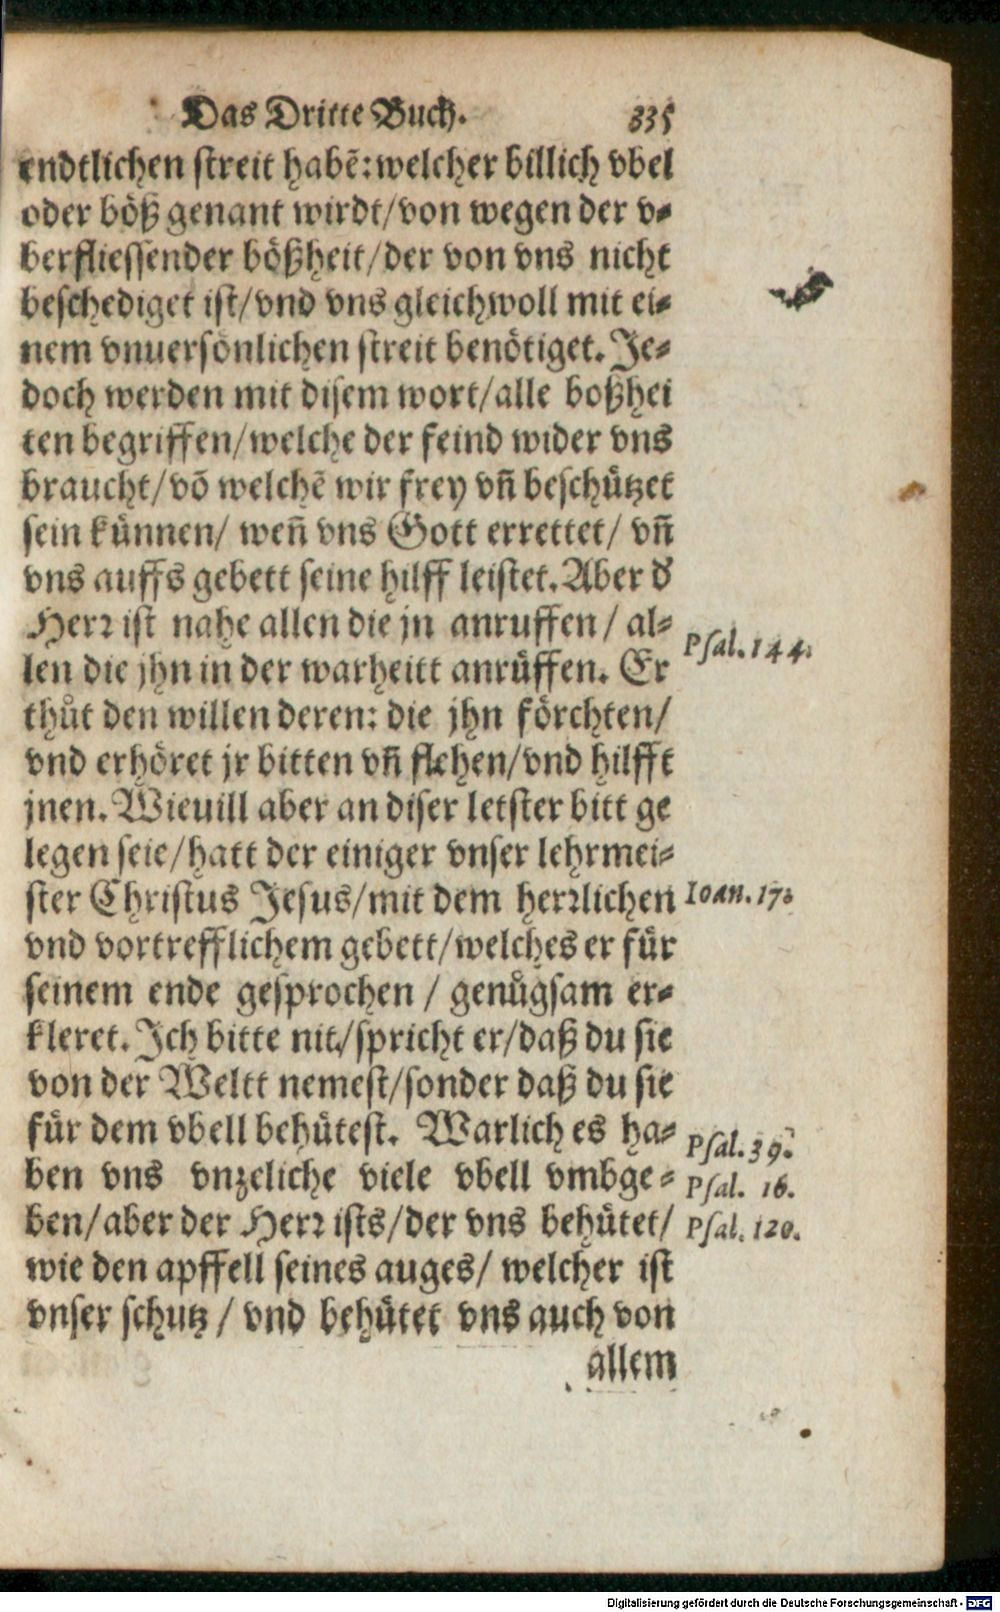 Das Dritte Buch. 335
endtlichen streit habē: welcher billich vbel
oder böß genant wirdt/ von wegen der v⸗
berfliessender bößheit/ der von vns nicht
beschediget ist/ vnd vns gleichwoll mit ei⸗
nem vnuersönlichen streit benötiget. Je⸗
doch werden mit disem wort/ alle boßhei
ten begriffen/ welche der feind wider vns
braucht/ võ welchē wir frey vñ beschützet
sein künnen/ weñ vns Gott errettet/ vñ
vns auffs gebett seine hilff leistet. Aber d'
Herr ist nahe allen die jn anruffen/ al⸗
Psal. 144.
len die jhn in der warheitt anrüffen. Er
thůt den willen deren: die jhn förchten/
vnd erhöret jr bitten vñ flehen/ vnd hilfft
jnen. Wieuill aber an diser letster bitt ge
legen seie/ hatt der einiger vnser lehrmei⸗
ster Christus Jesus/ mit dem herrlichen
Ioan. 17.
vnd vortrefflichem gebett/ welches er für
seinem ende gesprochen / genůgsam er⸗
kleret. Ich bitte nit/ spricht er/ daß du sie
von der Weltt nemest/ sonder daß du sie
für dem vbell behütest. Warlich es ha⸗
Psal. 39.
ben vns vnzeliche viele vbell vmbge⸗
Psal. 16.
ben/ aber der Herr ists/ der vns behütet/
Psal. 120.
wie den apffell seines auges/ welcher ist
vnser schutz / vnd behütet vns auch von
allem
Digitalisierung gefördert durch die Deutsche Forschungsgemeinschaft - DFG